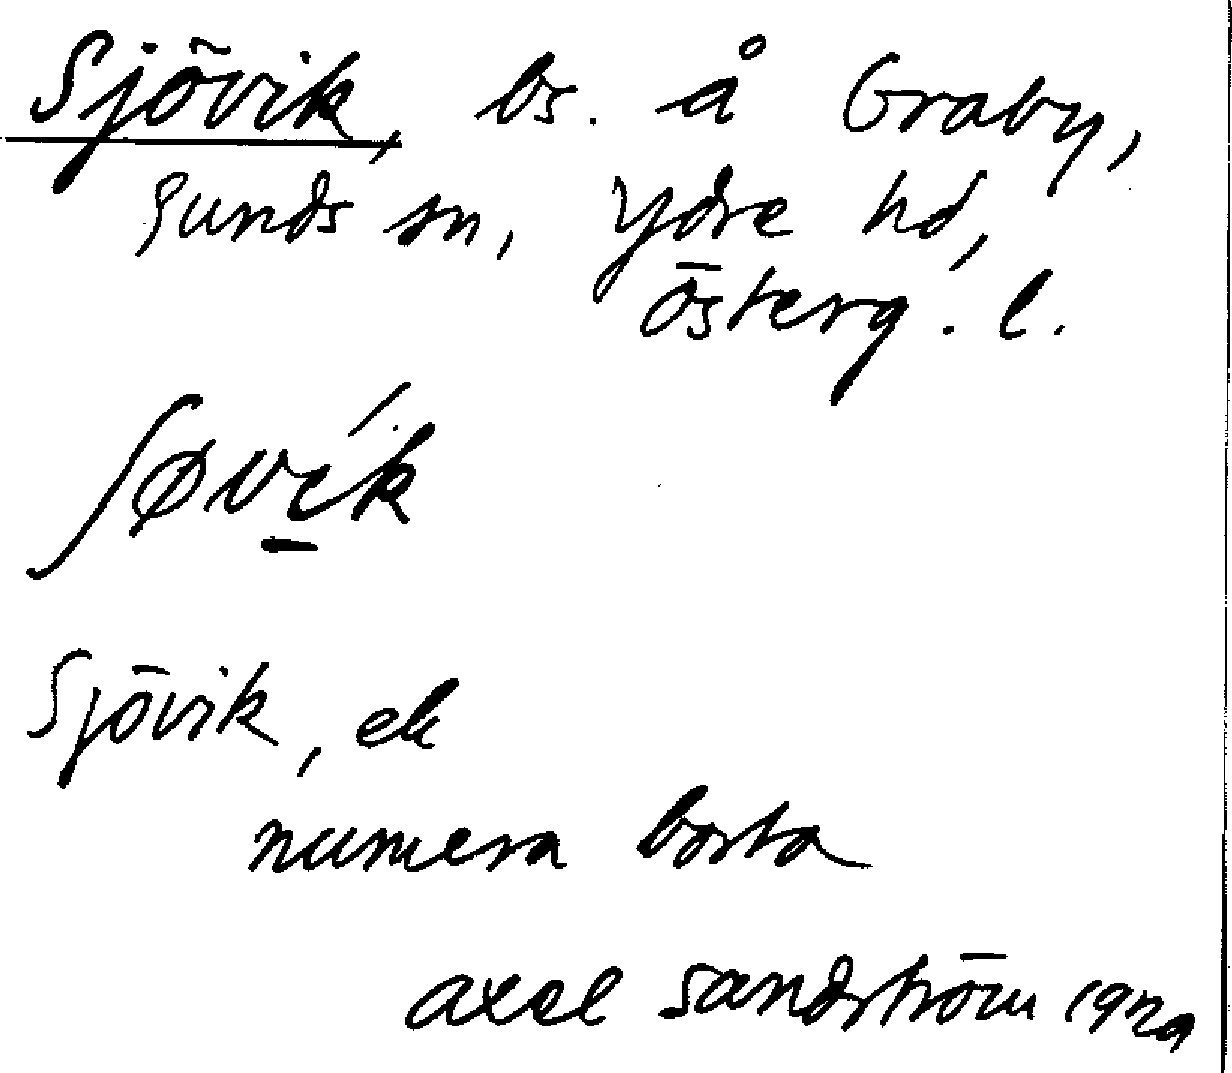 Sjövik, bs. å Graby,
Sunds sn, Ydre hd,
Österg. l.
ʃøvík
Sjövik, ek
numera borta
Axel Sandström